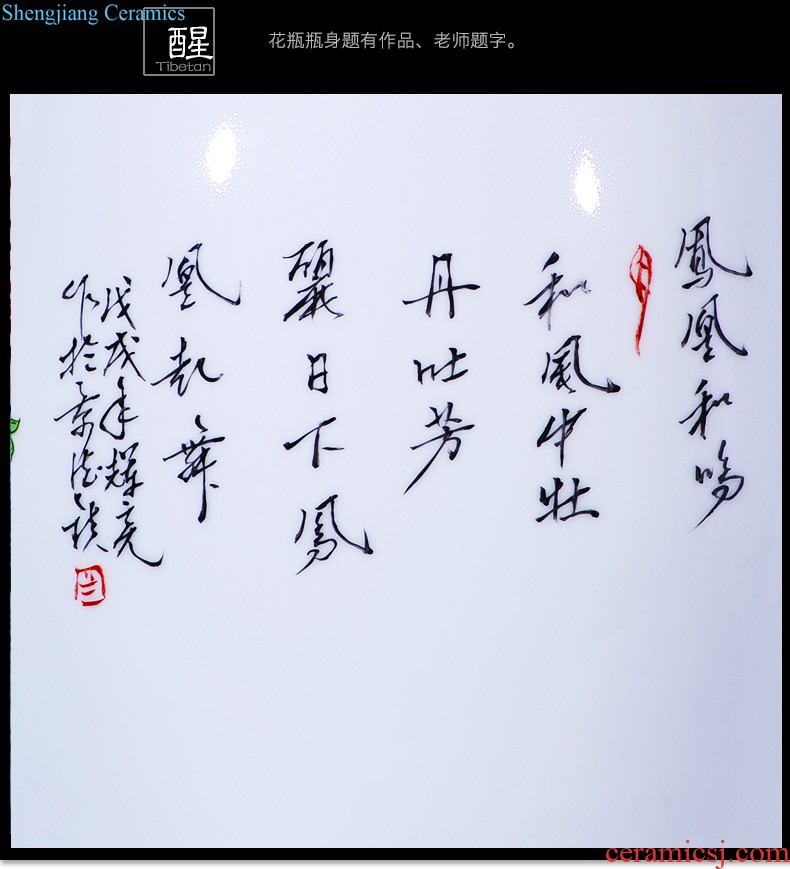 Shengjiang Ceramics
醒
Tibetan
花瓶瓶身题有作品、老师题字。
鳳凰和鸣
和風中牡
丹吐芳
麗日下鳳
凰起舞
戊戌年輝亮
作於景德镇
ceramicsj.com